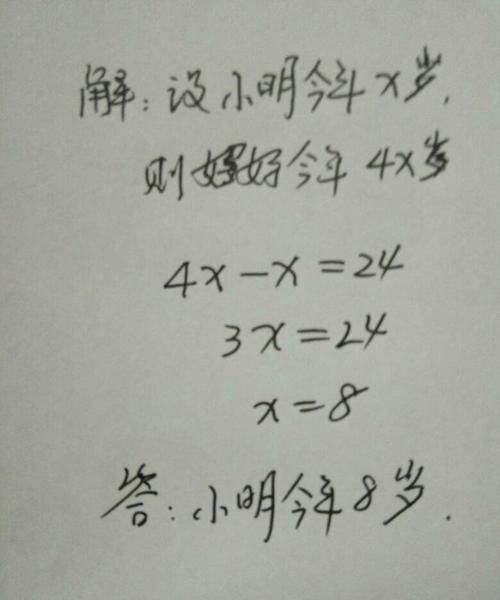 解：设小明今年x岁，
则妈妈今年 4x岁
4x－x＝24
3x＝24
x＝8
答：小明今年8岁．